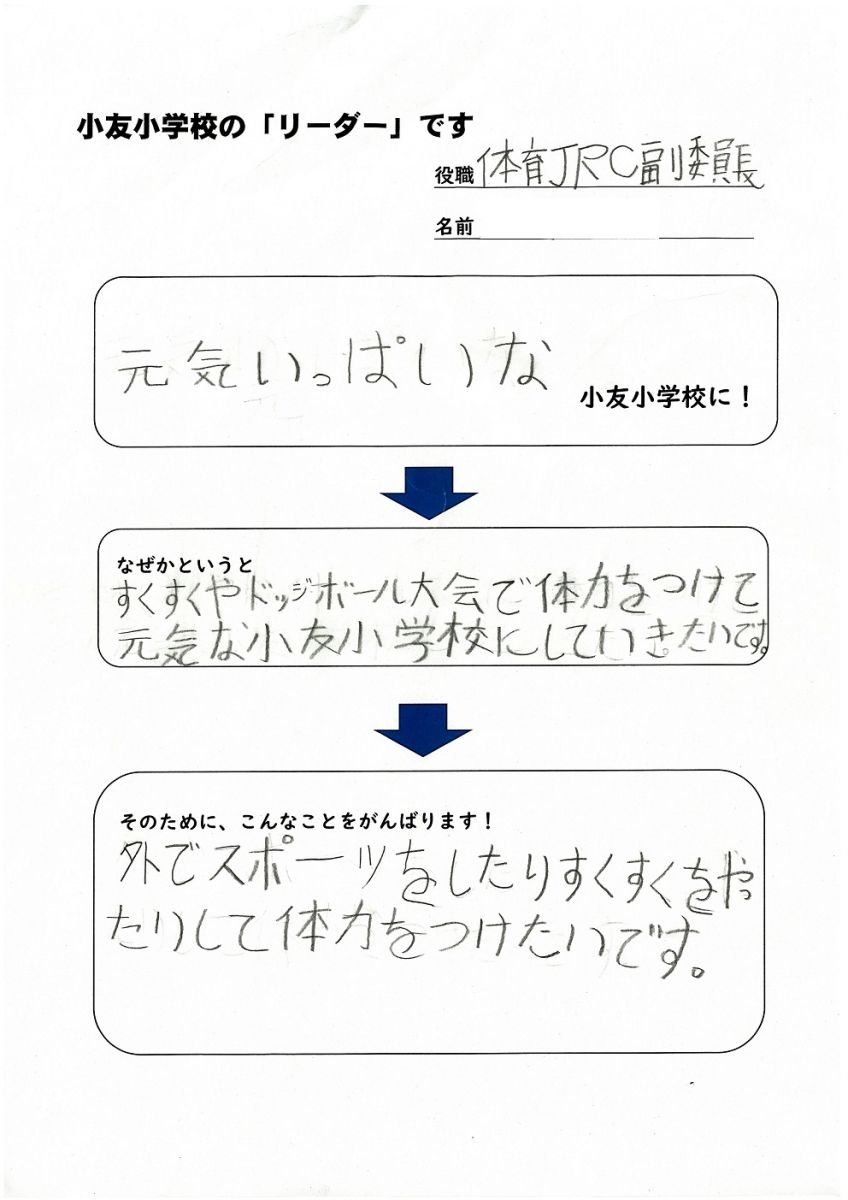 小友小学校の「リーダー」です
役職 体育JRC副委員長
名前
元気いっぱいな
小友小学校に！
なぜかというと
すくすくやドッジボール大会で体力をつけて
元気な小友小学校にしていきたいです。
そのために、こんなことをがんばります！
外でスポーツをしたりすくすくをやっ
たりして体力をつけたいです。